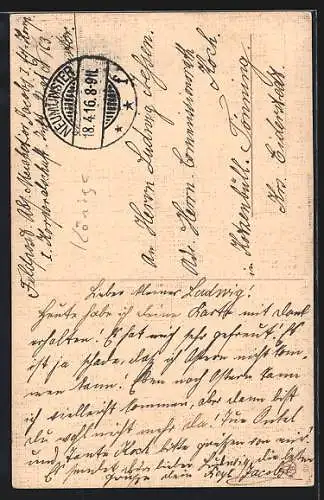 Feldpost.
NEUMÜNSTER
18.4.16.8-9N.
Könige
An Herrn Ludwig
Adr. Herrn Kommissionsrath
Koch.
in Kotzenbüll-Tönning
Krs. Eiderstedt
Lieber kleiner Ludwig!
Heute habe ich deine Karte mit Dank
erhalten! Es hat mich sehr gefreut! Es
ist ja schade, daß ich Ostern nicht kom-
men kann! Eben nach Ostern kann
ich vielleicht kommen, aber dann bist
du wohl nicht mehr da. Nun Onkel
und Tante Koch bitte grüßen von mir!
Es sendet lieber Ludwig die
Grüße dein Jacob